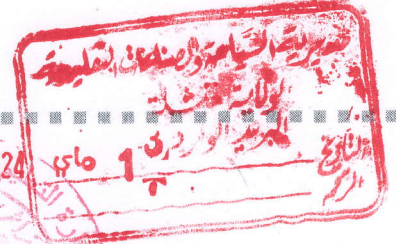 مديرية السياحة والصناعات التقليدية
لولاية خنشلة
البريد الوارد
التاريخ 1 ماي 24
الرقم